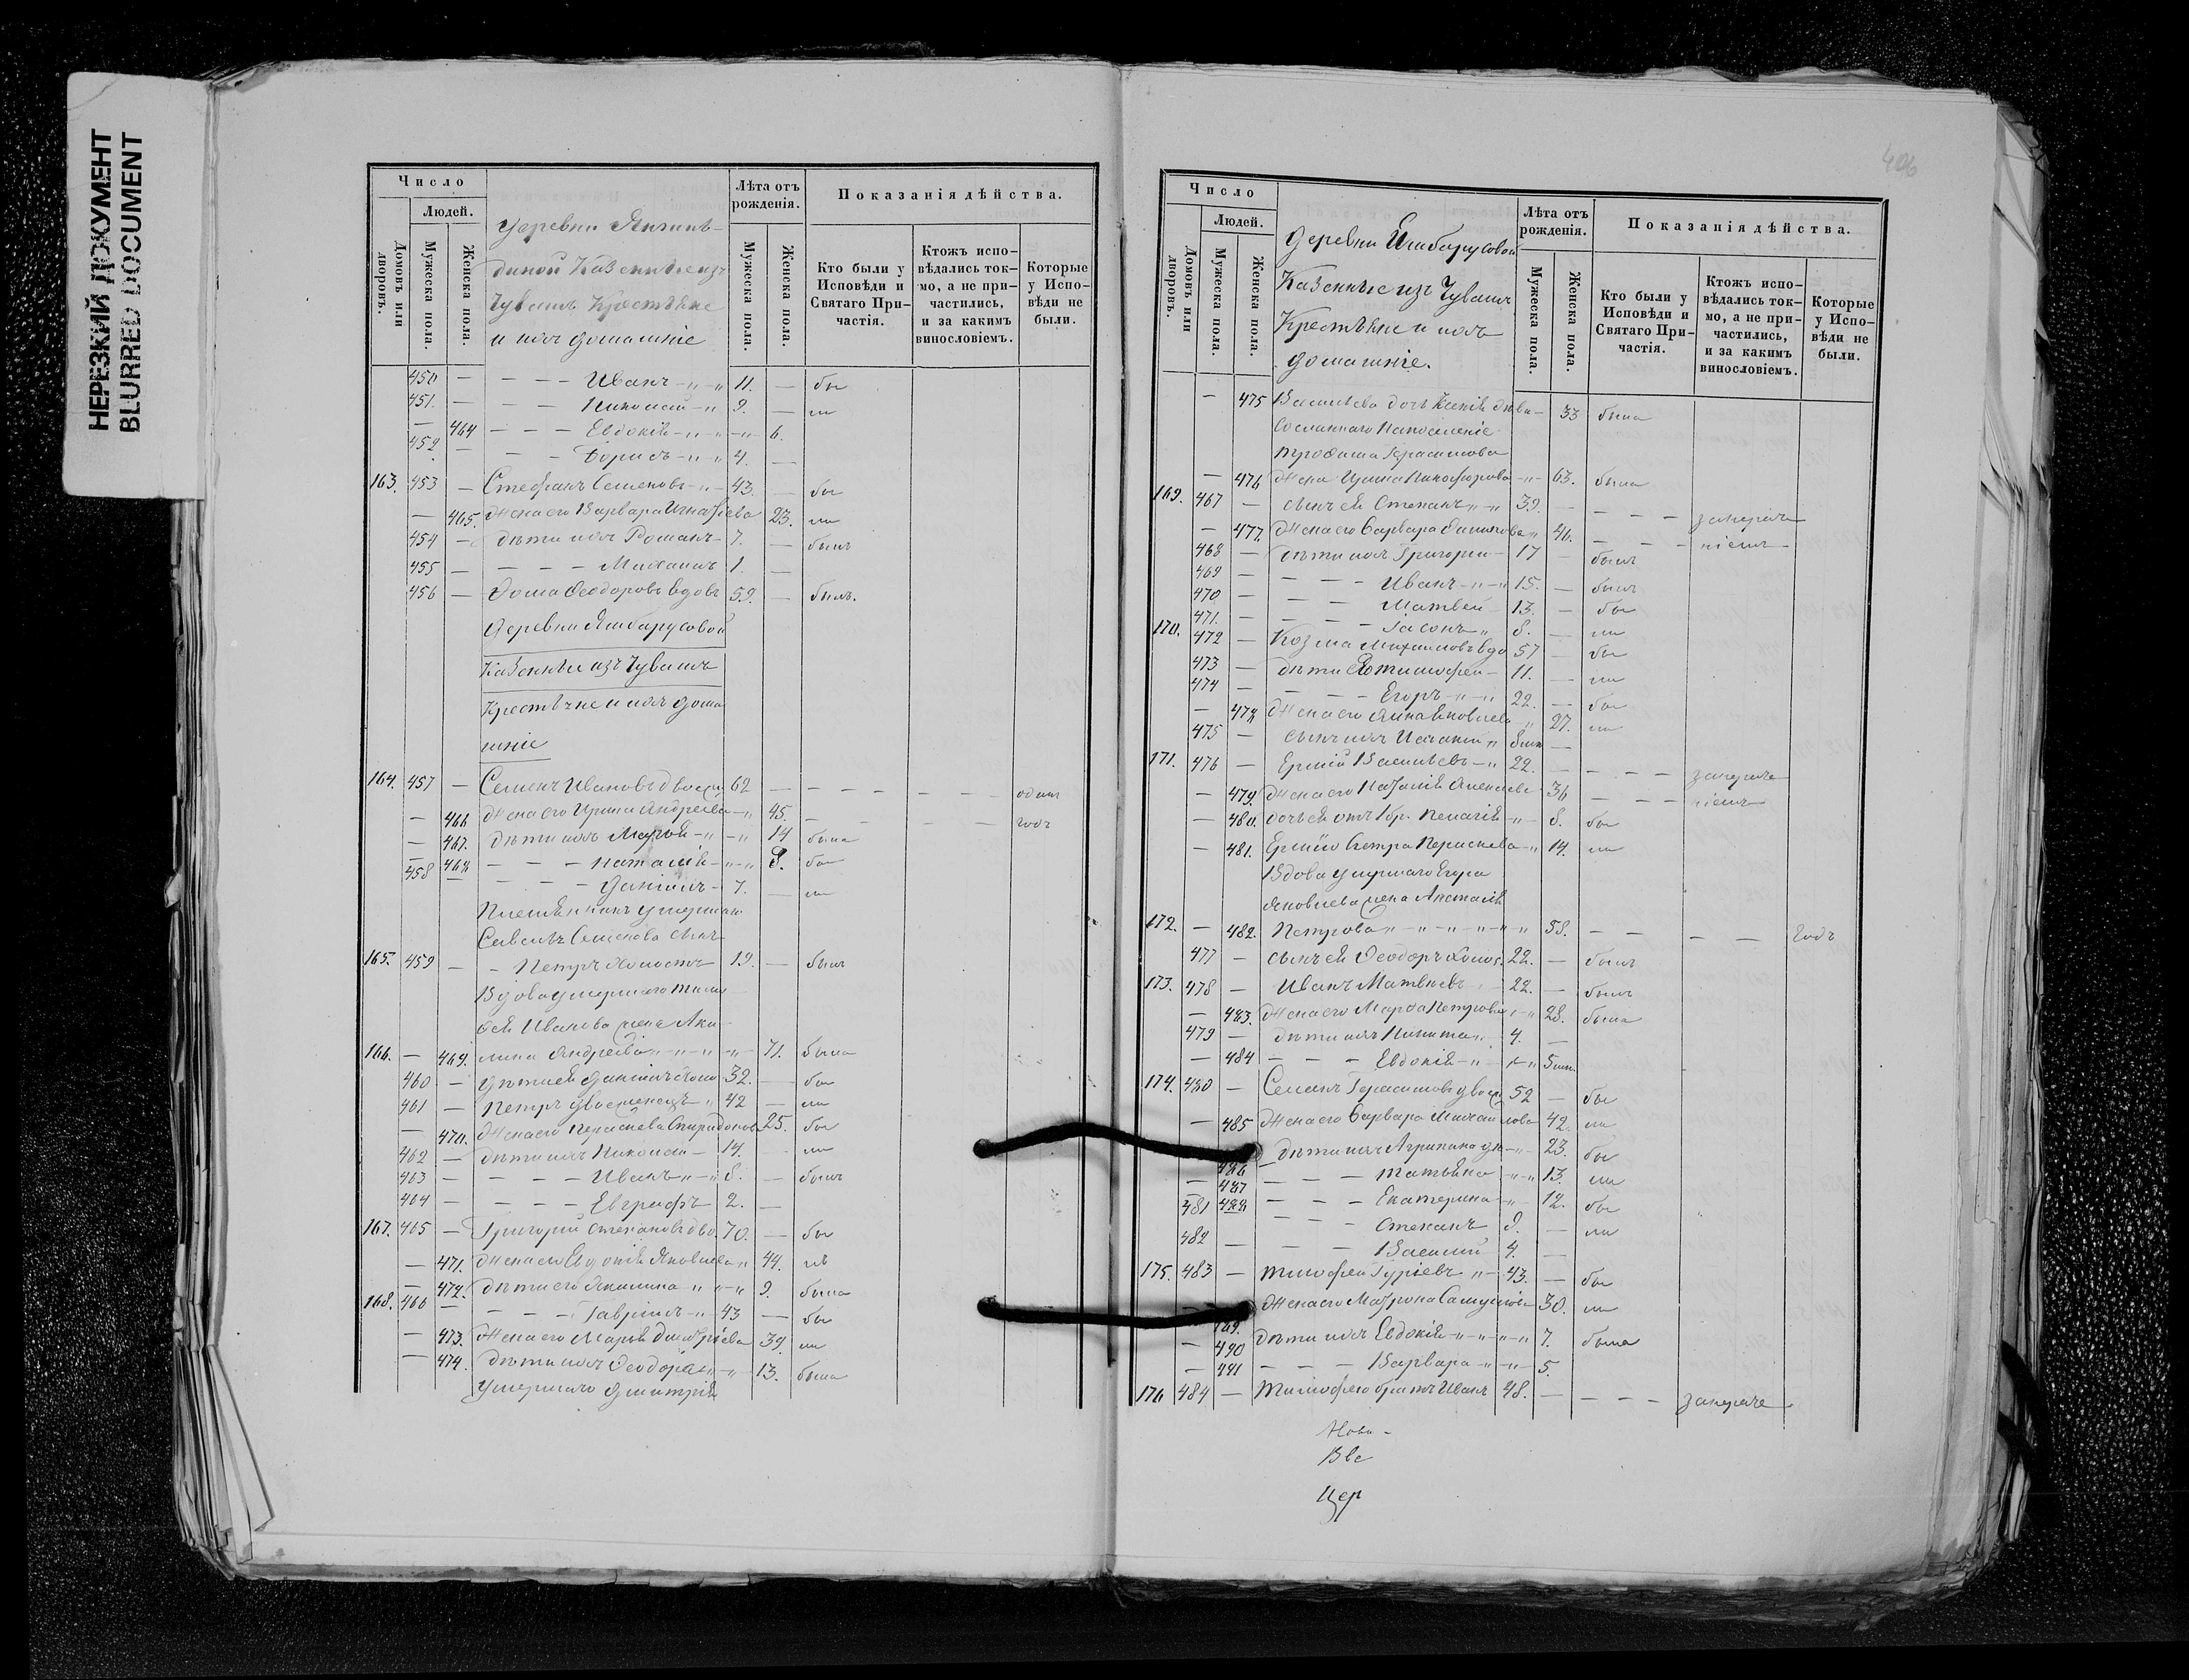 НЕРЕЗКИЙ ДОКУМЕНТ
BLURRED DOCUMENT
Число
Людей.
Домовъ или дворовъ.
Мужеска пола.
Женска пола.
деревни
Казенные изъ
Чувашъ Крестьяне
и ихъ домашніе
Лѣта отъ рожденія.
Мужеска пола.
Женска пола.
Показанія дѣйства.
Кто были у Исповѣди и Святаго Причастія.
Ктожъ исповѣдались токмо, а не причастились, и за какимъ винословіемъ.
Которые у Исповѣди не были.
450 — — — — Иванъ 11. — бы
451. — — — Николай 9. — ли
— 464 — — — Евдокія 6.
452. — — — Борисъ 4. —
163. 453 — Стефанъ Семеновъ 43. — бы
— 465. Жена его Варвара Игнатіева 23. ли
454 — дѣти ихъ Романъ 7. — былъ
455 — — — — Михаилъ 1. —
456 — Фома Феодоровъ вдовъ 59. — былъ.
Деревни Яшбарусовой
Казенные изъ Чувашъ
Крестьяне и ихъ дома
шніе
164. 457 — Семенъ Ивановъ двоеж 62 — — — — — — одинъ
— 466 Жена его Ирина Андреева 45. — — — годъ
— 467. дѣти ихъ Марѳа 14 была
— 468 — — — Наталія 8. бы
458 — — — — Даніилъ 7. — ли
Племянникъ умершаго
Савелъ Семенова сынъ
165. 459 — — Петръ Холостъ 19. — былъ
Вдова умершаго Тимо
фея Иванова жена Аку
166. — 469. лина Андреева 71. была
460 — дѣти ея Даніилъ Холо 32. — бы
461 — Петръ двоеженецъ 42 — ли
— 470. Жена его Параскева Спиридонов 25. бы
462 — дѣти ихъ Николай 14. — ли
463 — — — — Иванъ 8. — былъ
464 — — — — Евграфъ 2. —
167. 465 — Григорій Степановъ дво. 70. — бы
— 471. Жена его Евдокія Яковлева 44. ли
— 472. дѣти его Акилина 9. была
168. 466 — — — — Гавріилъ 43 — бы
— 473. Жена его Марья Дмитріева 39. ли
— 474. дѣти ихъ Феодора 13. была
умершаго Дмитрія
406
Число
Людей.
Домовъ или дворовъ.
Мужеска пола.
Женска пола.
деревни Ешбарусовой
Казенные изъ Чувашъ
Крестьяне и ихъ
домашніе.
Лѣта отъ рожденія.
Мужеска пола.
Женска пола.
Показанія дѣйства.
Кто были у Исповѣди и Святаго Причастія.
Ктожъ исповѣдались токмо, а не причастились, и за какимъ винословіемъ.
Которые у Исповѣди не были.
— 475 Васильева дочь Ксенія дѣви — 33 была
Сосланнаго На поселеніе
Трофима Герасимова
— 476 Жена Ирина Никифорова 63. была
169. 467 — сынъ ея Степанъ 39. — — — — запреще
— 477. Жена его Варвара 46. — — — ніемъ
468 — дѣти ихъ Григорій 17 — былъ
469 — — — Иванъ 15. — былъ
470 — — — Матвей 13. — бы
471. — — — Іасонъ 8. — ли
170. 472 — Козма Михайловъ вдо 57 — бы
473 — дѣти его Тимофей 11. — ли
474 — — — — Егоръ 22. — бы
— 478 Жена его Анна Яковлева 27. ли
475 — сынъ ихъ 8 мѣс —
171. 476 — Ермій Васильевъ 22. — — — — запреще
— 479. Жена его Наталія Алексѣева 36 — — — ніемъ
— 480. дочь ея отъ 1 бр. Пелагія 8. бы
— 481. Ермія Сестра Параскева 14. ли
Вдова умершаго Егора
Яковлева жена Анастасія
172. — 482. Петрова 58. — — — — Годъ
477 — сынъ ея Феодоръ Холос. 22. — былъ
173. 478 — Иванъ Матвѣевъ 22. — былъ
— 483. Жена его Марѳа Петрова 28. была
479 — дѣти ихъ Никита 4. —
— 484 — — — Евдокія 5 мѣс.
174. 480 — Семенъ Герасимовъ двоеж 52 — бы
— 485 Жена его Варвара Михайлова 42. ли
— 486 дѣти ихъ Агрипина дѣ 23. бы
— 487 — — — Татьяна 13. ли
— 488 — — — Екатерина 12. бы
481 — — — Степанъ 9. — ли
482 — — — — Василій 4. —
175. 483 — Тимофей Гуріевъ 43. — бы
— 489. Жена его Матрона Самуилова 30. ли
— 490 дѣти ихъ Евдокія 7. была
— 491 — — — Варвара 5.
176 484 — Тимофея братъ Иванъ 48. — — — — запреще
Нови-
Вве
Цер